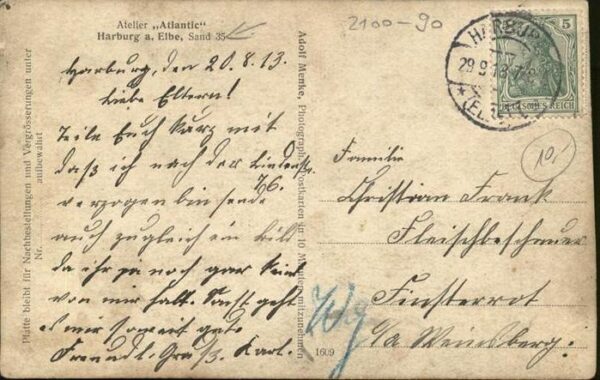 Atelier „Atlantic"
Harburg a. Elbe, Sand 35
2100-90
Harburg, den 20.8.13.
Liebe Eltern!
Teile Euch kurz mit
daß ich nach der Lindenstr.
76.
verzogen bin sende
auch zugleich ein Bild
da ihr ja noch gar keins
von mir habt. Sonst geht
es mir soweit gut.
Freundl. Gruß. Karl.
Platte bleibt für Nachbestellungen und Vergrösserungen unter
Nr. aufbewahrt
Adolf Menke, Photograph. Postkarten in 10 Minuten mitzunehmen
1609
HARBURG
(ELBE)
5
DEUTSCHES REICH
10,-
Familie
Christian Frank
Fleischbeschauer
Finsterrot
o/a Weinsberg.